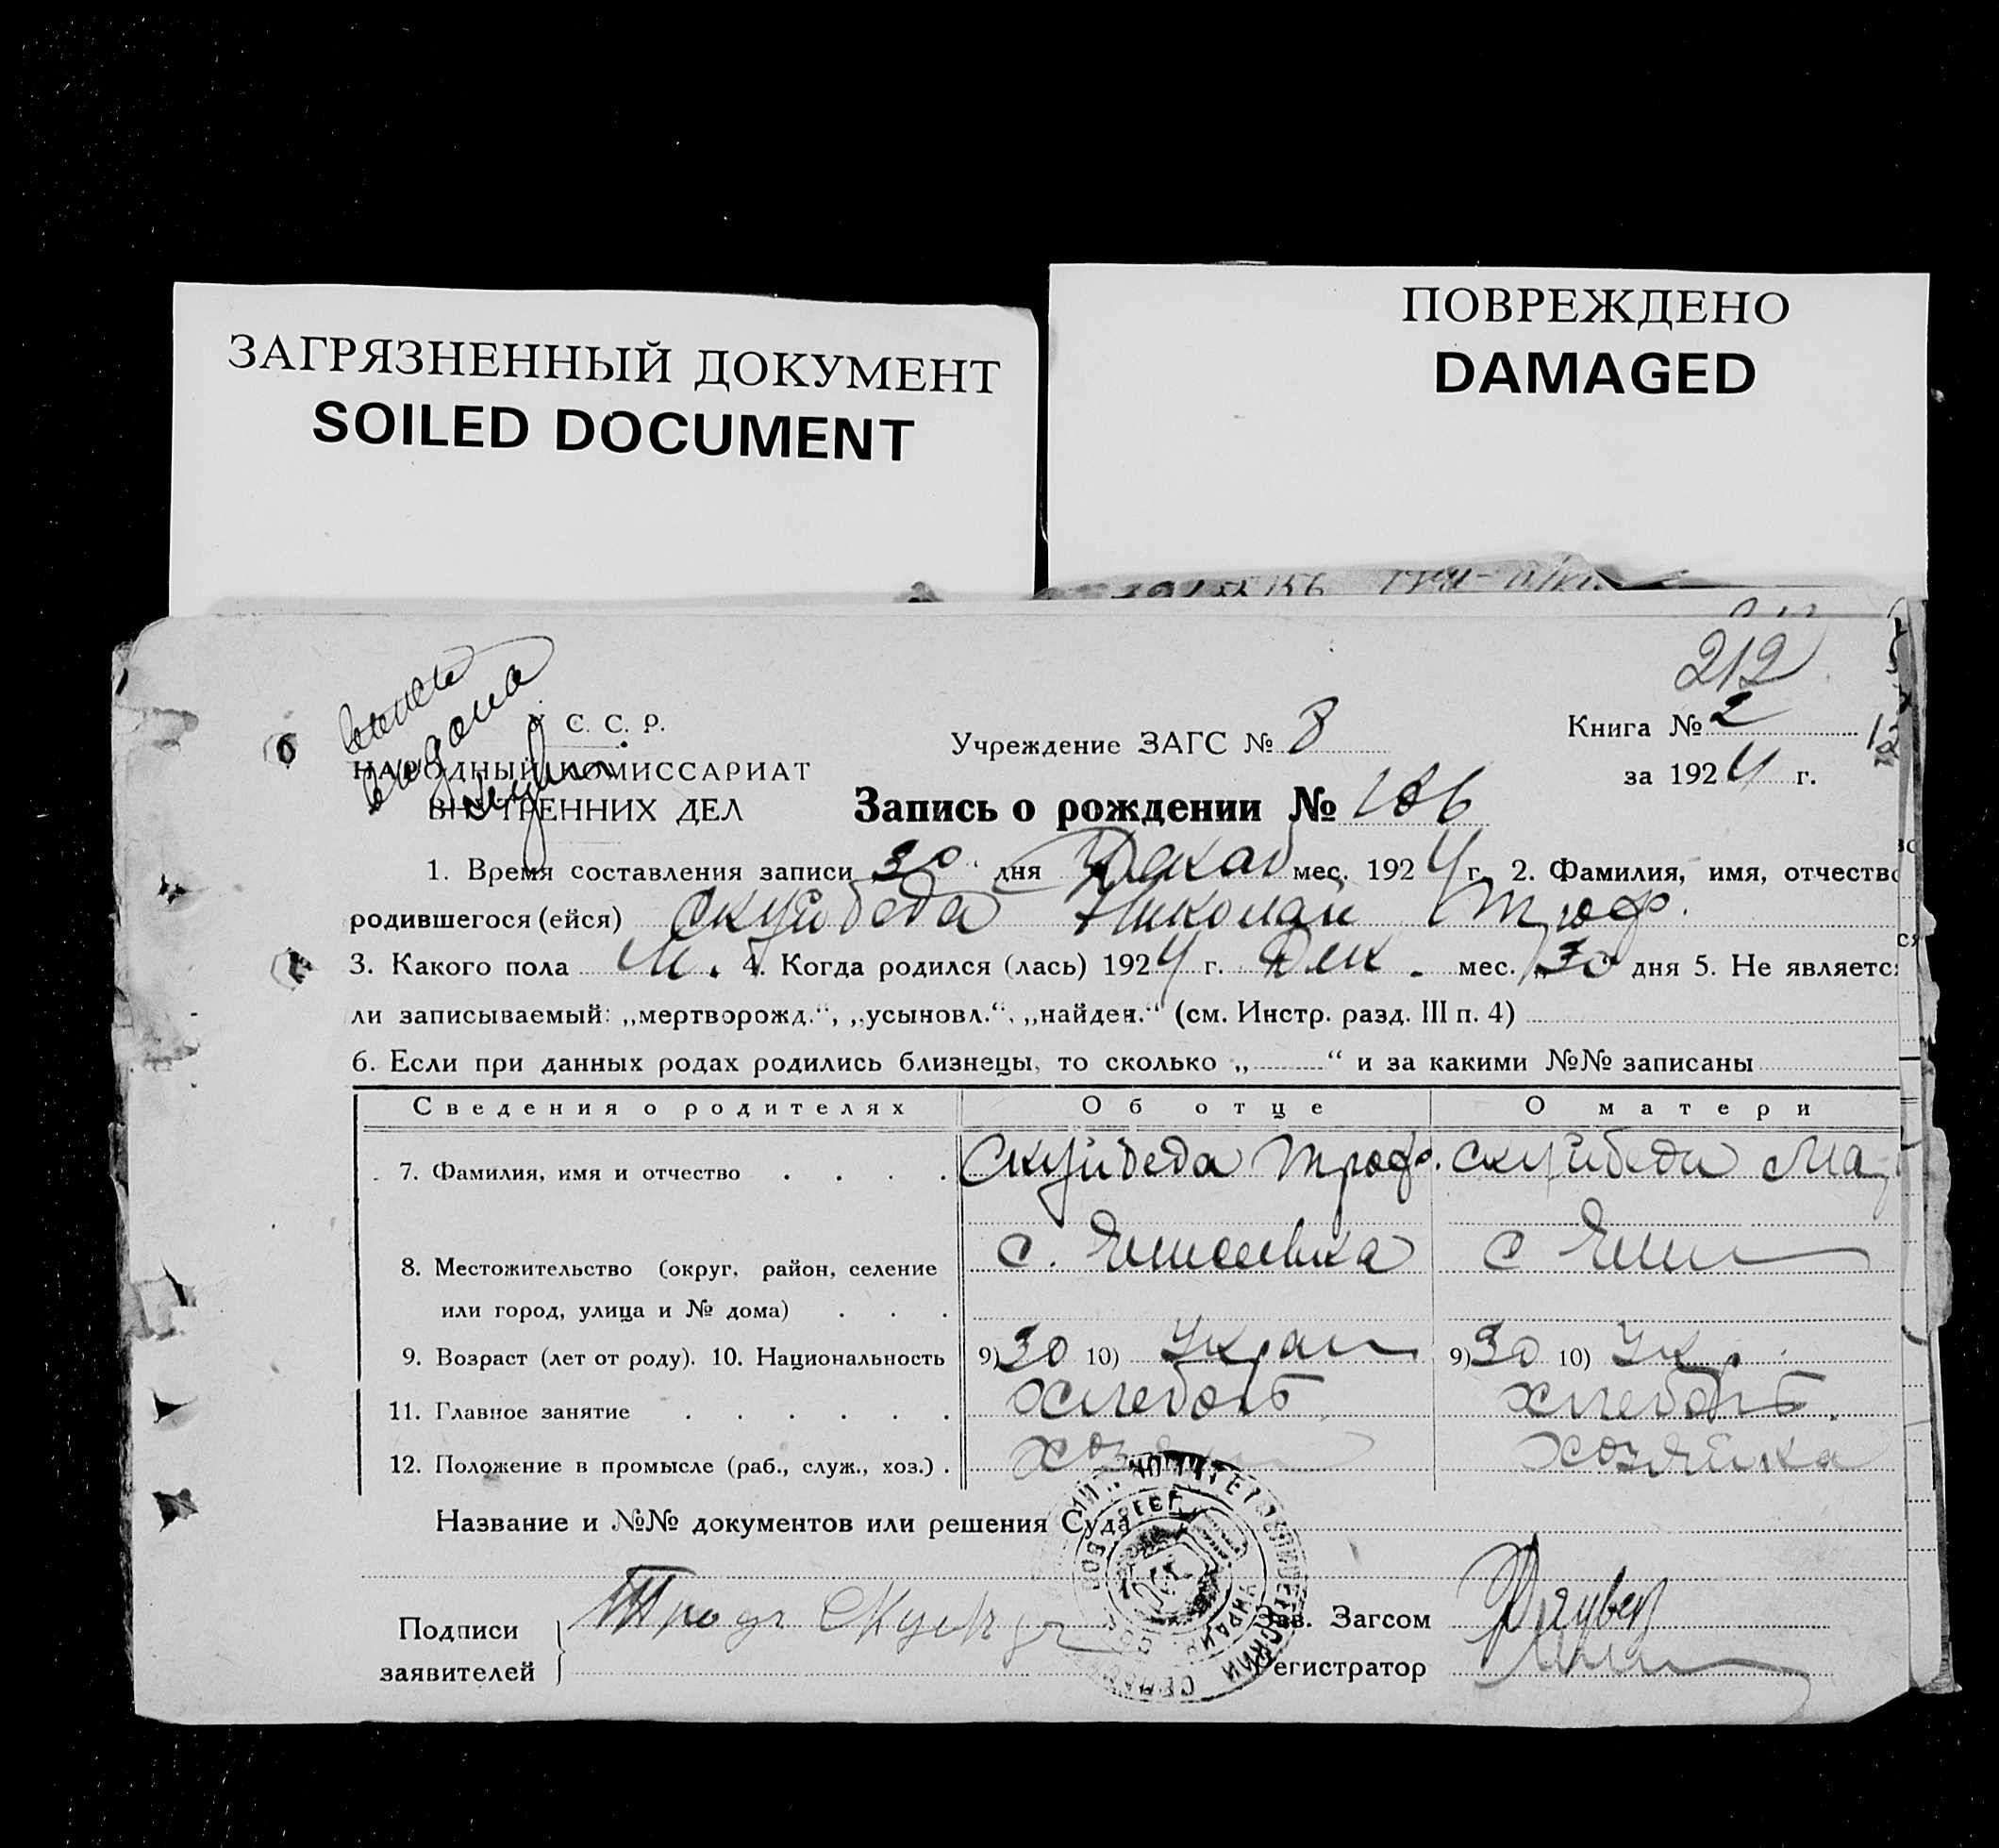 ЗАГРЯЗНЕННЫЙ ДОКУМЕНТ
SOILED DOCUMENT
ПОВРЕЖДЕНО
DAMAGED
212
У. С. С. Р.
НАРОДНЫЙ КОМИССАРИАТ
ВНУТРЕННИХ ДЕЛ
Учреждение ЗАГС № 8
Книга № 2
12
за 1924 г.
Запись о рождении № 186
1. Время составления записи 30 дня Декаб мес. 1924 г. 2. Фамилия, имя, отчество
родившегося (ейся) Скуйбеда Николай Троф.
3. Какого пола М. 4. Когда родился (лась) 1924 г. Дек. мес. „30" дня 5. Не является
ли записываемый: „мертворожд.“, „усыновл.“, „найден.“ (см. Инстр. разд. III п. 4)
6. Если при данных родах родились близнецы, то сколько „ “ и за какими №№ записаны
Сведения о родителях Об отце О матери
7. Фамилия, имя и отчество . . . . Скуйбеда Троф. Скуйбеда Ма
8. Местожительство (округ, район, селение с. Елисеевка с Ели
или город, улица и № дома) . . .
9. Возраст (лет от роду). 10. Национальность 9) 30 10) Украин 9) 30 10) Ук
11. Главное занятие . . . . . . Хлебороб Хлебор
12. Положение в промысле (раб., служ., хоз.) . Хозяин Хозяйка
Название и №№ документов или решения Суда
Подписи
заявителей
Зав. Загсом
Регистратор